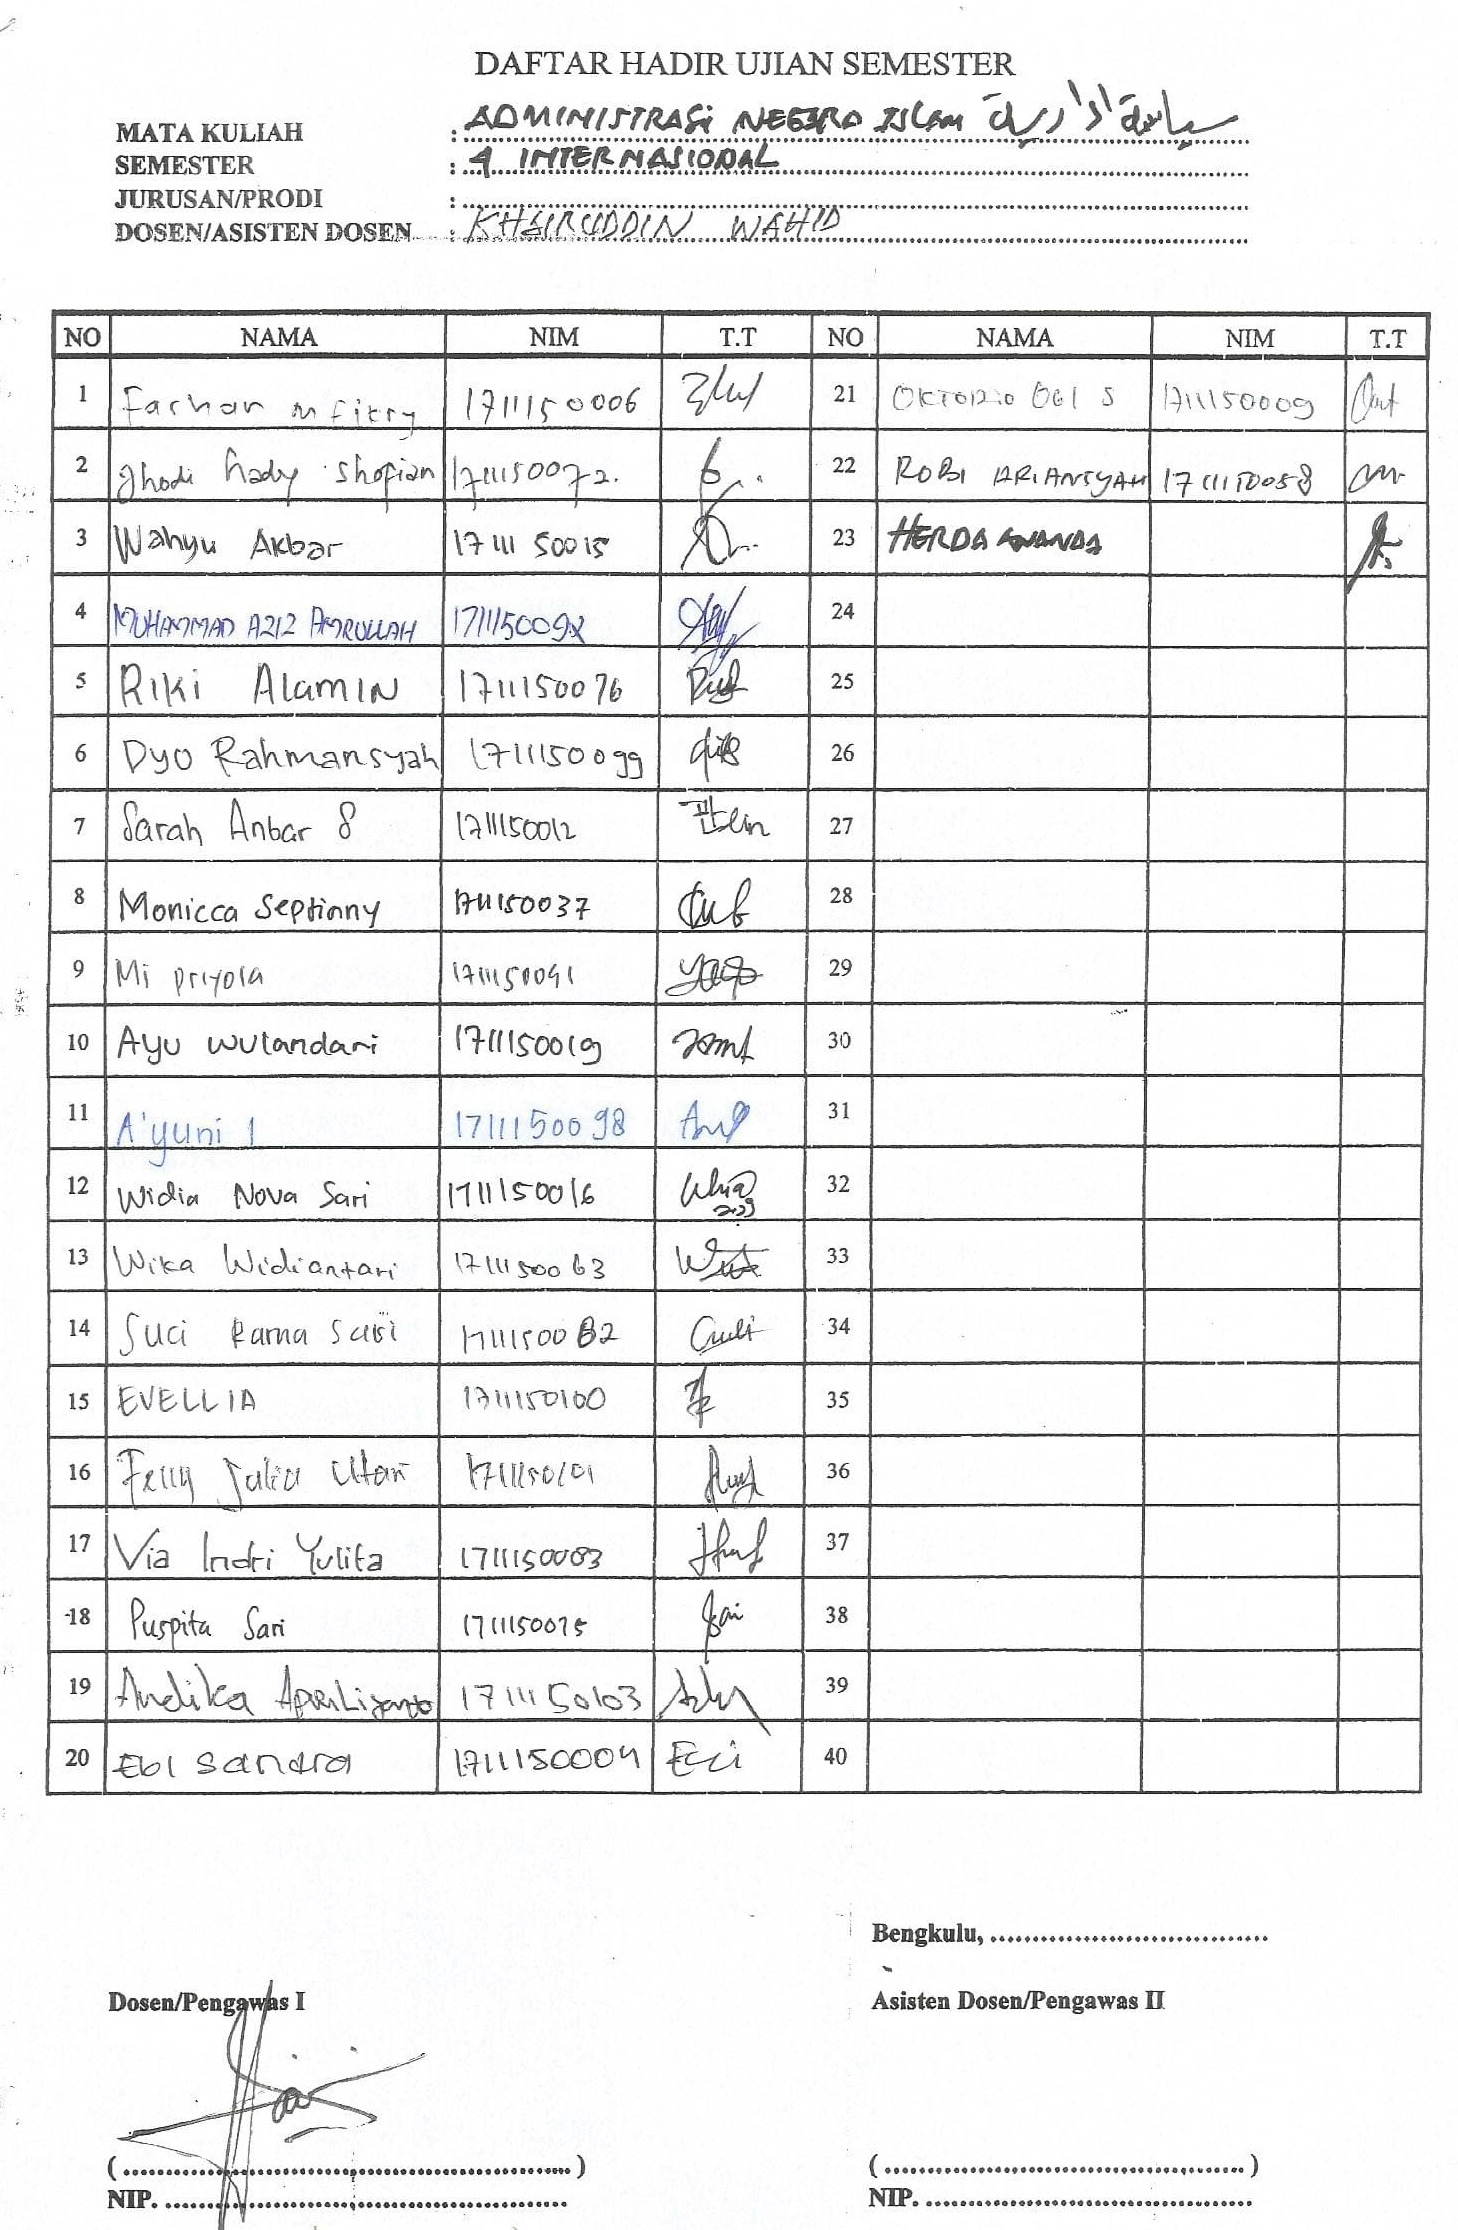 DAFTAR HADIR UJIAN SEMESTER
MATA KULIAH : ADMINISTRASI NEGERA ISLam
SEMESTER : 4 INTERNASIONAL
JURUSAN/PRODI :
DOSEN/ASISTEN DOSEN : KHAIRUDDIN WAHID
NO NAMA NIM T.T NO NAMA NIM T.T
1 Farhan M Fitry 1711150006 21 OKTORIO OGI S 1711150009
2 Jhodi hady Shofian 1711150072. 22 ROBI ARIANSYAH 1711150058
3 Wahyu Akbar 1711150015 23 HERDA ANANDA
4 MUHAMMAD AZIZ AMRULLAH 24
5 RIKI ALAMIN 1711150076 25
6 Dyo Rahmansyah 1711150099 26
7 Sarah Anbar S 1711150012 27
8 Monicca Septinny 1711150037 28
9 Mi priyola 1711150091 29
10 Ayu wulandari 1711150019 30
11 A'yuni I 1711150098 31
12 Widia Nova Sari 1711150016 32
13 Wika Widiantari 1711150063 33
14 Suci Rama Sari 1711150082 34
15 EVELLIA 1711150100 35
16 Feny Julia Utari 1711150101 36
17 Via Indri Yulita 1711150083 37
18 Puspita Sari 1711150075 38
19 Andika APRILiyanto 1711150103 39
20 Ebi Sandra 1711150004 40
Bengkulu, ................................
Dosen/Pengawas I Asisten Dosen/Pengawas II
(....................................................) (....................................................)
NIP. .................................................. NIP. ..................................................